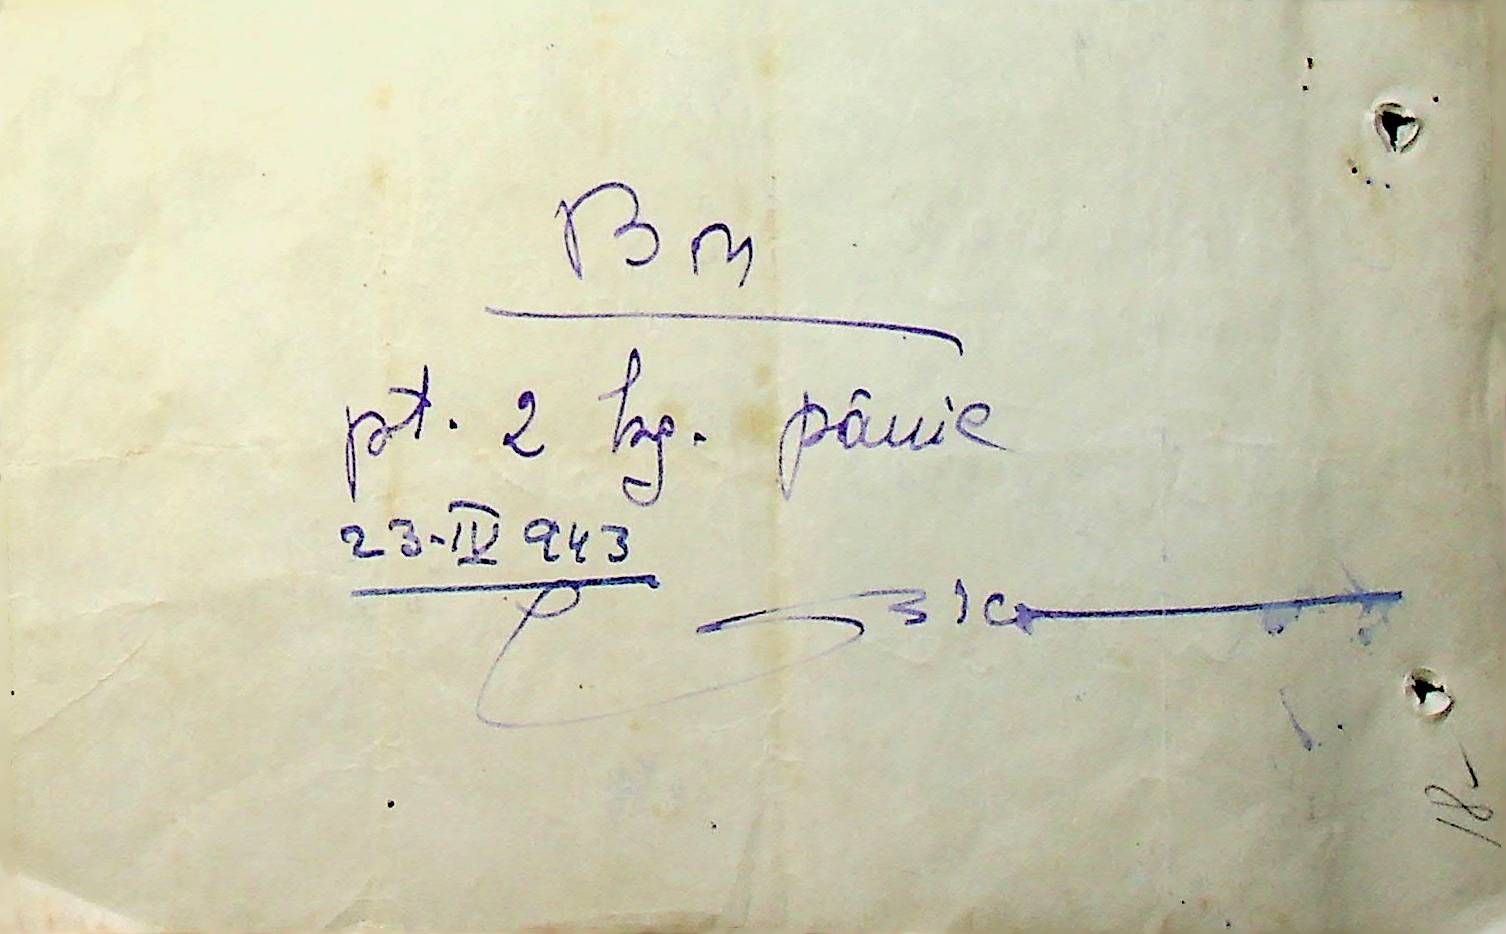 Bon
pt. 2 kg. pâine
23-IV 943
18-